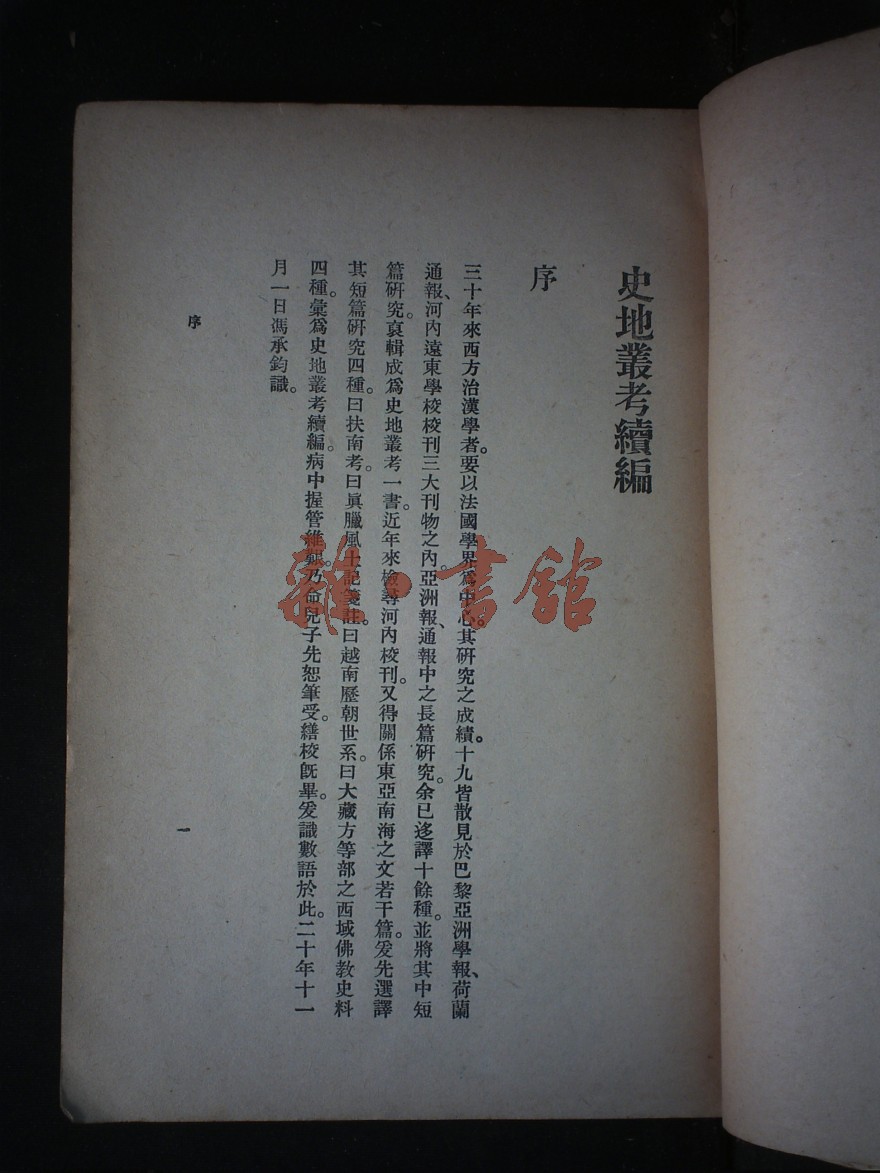 史地叢考續編
序
三十年來西方治漢學者。要以法國學界爲中心。其硏究之成績。十九皆散見於巴黎亞洲學報、荷蘭
通報、河內遠東學校校刊三大刊物之內。亞洲報、通報中之長篇硏究。余已迻譯十餘種。並將其中短
篇硏究。裒輯成爲史地叢考一書。近年來檢尋河內校刊。又得關係東亞南海之文若干篇。爰先選譯
其短篇硏究四種。曰扶南考。曰眞臘風土記箋註。曰越南歷朝世系。曰大藏方等部之西域佛教史料
四種。彙爲史地叢考續編。病中握管維艱。乃命兒子先恕筆受。繕校旣畢。爰識數語於此。二十年十一
月一日馮承鈞識。
序
一
雜·書館